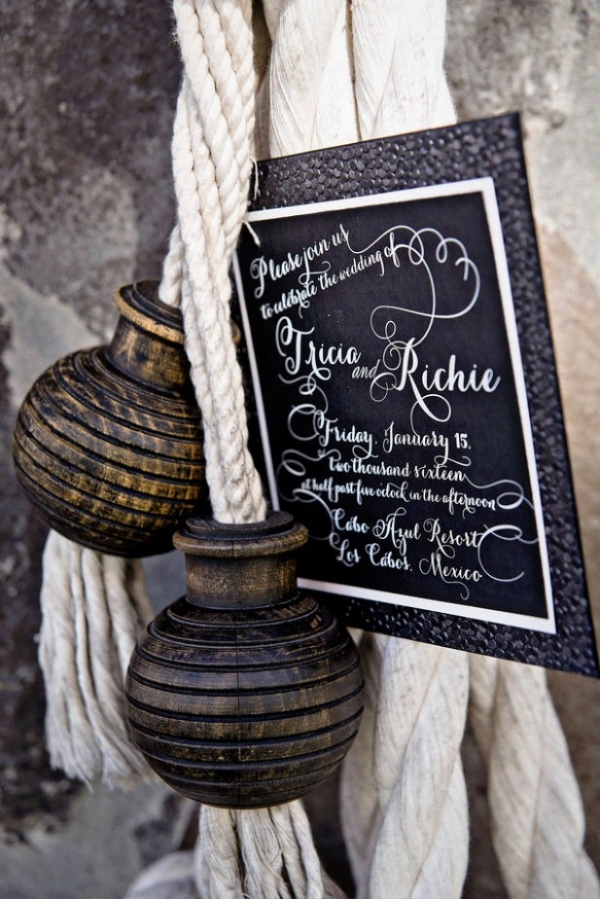 Please join us
to celebrate the wedding of
Tricia and Richie
Friday, January 15,
two thousand sixteen
at half past five oclock in the afternoon
Cabo Azul Resort
Los Cabos, Mexico